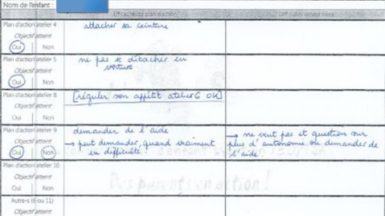 Nom de l'enfant :
Plan d'action atelier 4
attacher sa ceinture
Objectif atteint
Oui Non
Plan d'action atelier 5
ne pas se détacher en
voiture
Objectif atteint
Oui Non
Plan d'action atelier 8
[réguler son appétit atelier 6 OK]
Objectif atteint
Oui Non
Plan d'action atelier 9
demander de l'aide
→ ne veut pas et question sur
Objectif atteint
→ peut demander, quand vraiment
plus d'autonomie ou demander de
Oui Non
en difficulté
l'aide
Plan d'action atelier 10
Objectif atteint
Oui Non
Autre-s (6 ou 11)
Objectif atteint